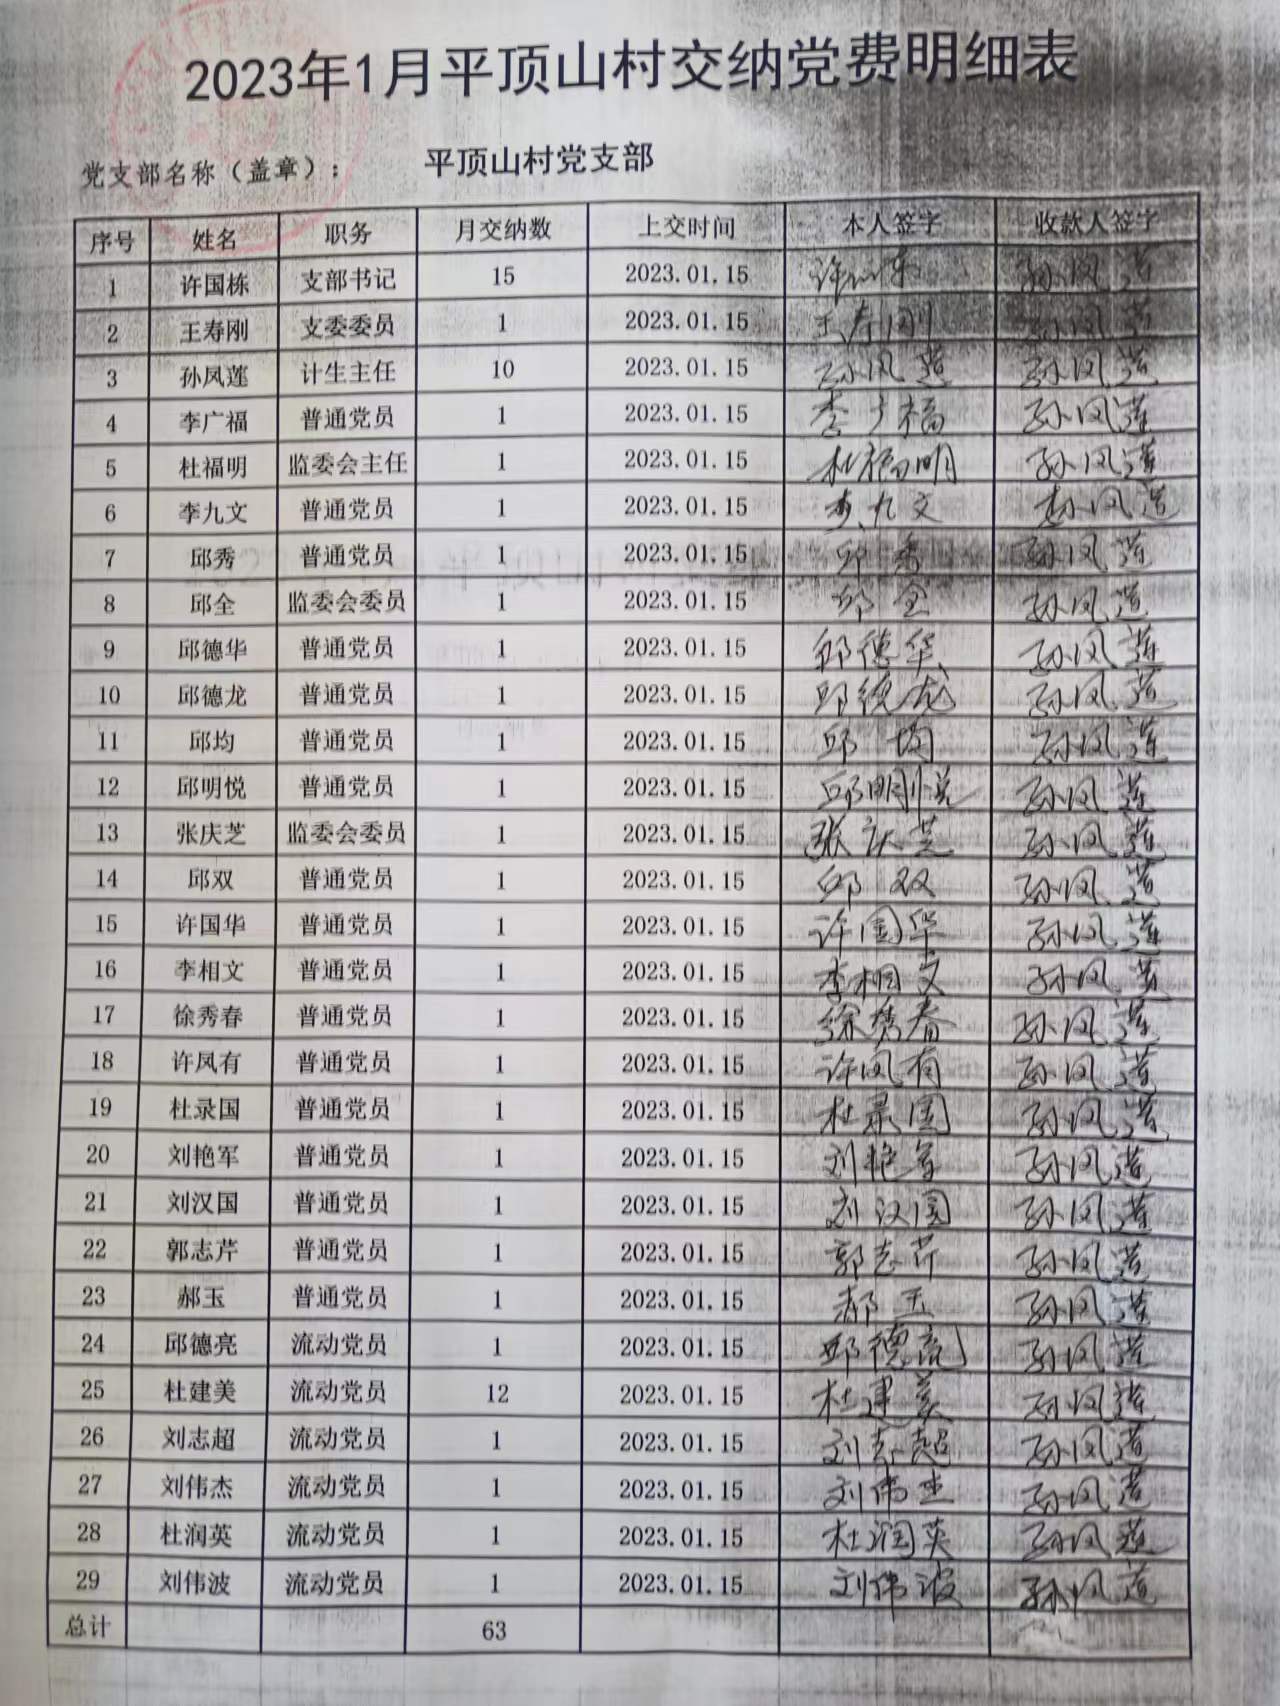 2023年1月平顶山村交纳党费明细表
党支部名称（盖章）： 平顶山村党支部
序号 姓名 职务 月交纳数 上交时间 本人签字 收款人签字
1 许国栋 支部书记 15 2023.01.15 孙凤莲
2 王寿刚 支委委员 1 2023.01.15 王寿刚 孙凤莲
3 孙凤莲 计生主任 10 2023.01.15 孙凤莲 孙凤莲
4 李广福 普通党员 1 2023.01.15 李广福 孙凤莲
5 杜福明 监委会主任 1 2023.01.15 杜福明 孙凤莲
6 李九文 普通党员 1 2023.01.15 李九文 孙凤莲
7 邱秀 普通党员 1 2023.01.15 邱秀 孙凤莲
8 邱全 监委会委员 1 2023.01.15 邱全 孙凤莲
9 邱德华 普通党员 1 2023.01.15 邱德华 孙凤莲
10 邱德龙 普通党员 1 2023.01.15 邱德龙 孙凤莲
11 邱均 普通党员 1 2023.01.15 邱均 孙凤莲
12 邱明悦 普通党员 1 2023.01.15 邱明悦 孙凤莲
13 张庆芝 监委会委员 1 2023.01.15 张庆芝 孙凤莲
14 邱双 普通党员 1 2023.01.15 邱双 孙凤莲
15 许国华 普通党员 1 2023.01.15 许国华 孙凤莲
16 李相文 普通党员 1 2023.01.15 李相文 孙凤莲
17 徐秀春 普通党员 1 2023.01.15 徐秀春 孙凤莲
18 许凤有 普通党员 1 2023.01.15 许凤有 孙凤莲
19 杜录国 普通党员 1 2023.01.15 杜录国 孙凤莲
20 刘艳军 普通党员 1 2023.01.15 刘艳军 孙凤莲
21 刘汉国 普通党员 1 2023.01.15 刘汉国 孙凤莲
22 郭志芹 普通党员 1 2023.01.15 郭志芹 孙凤莲
23 郝玉 普通党员 1 2023.01.15 郝玉 孙凤莲
24 邱德亮 流动党员 1 2023.01.15 邱德亮 孙凤莲
25 杜建美 流动党员 12 2023.01.15 杜建美 孙凤莲
26 刘志超 流动党员 1 2023.01.15 刘志超 孙凤莲
27 刘伟杰 流动党员 1 2023.01.15 刘伟杰 孙凤莲
28 杜润英 流动党员 1 2023.01.15 杜润英 孙凤莲
29 刘伟波 流动党员 1 2023.01.15 刘伟波 孙凤莲
总计 63